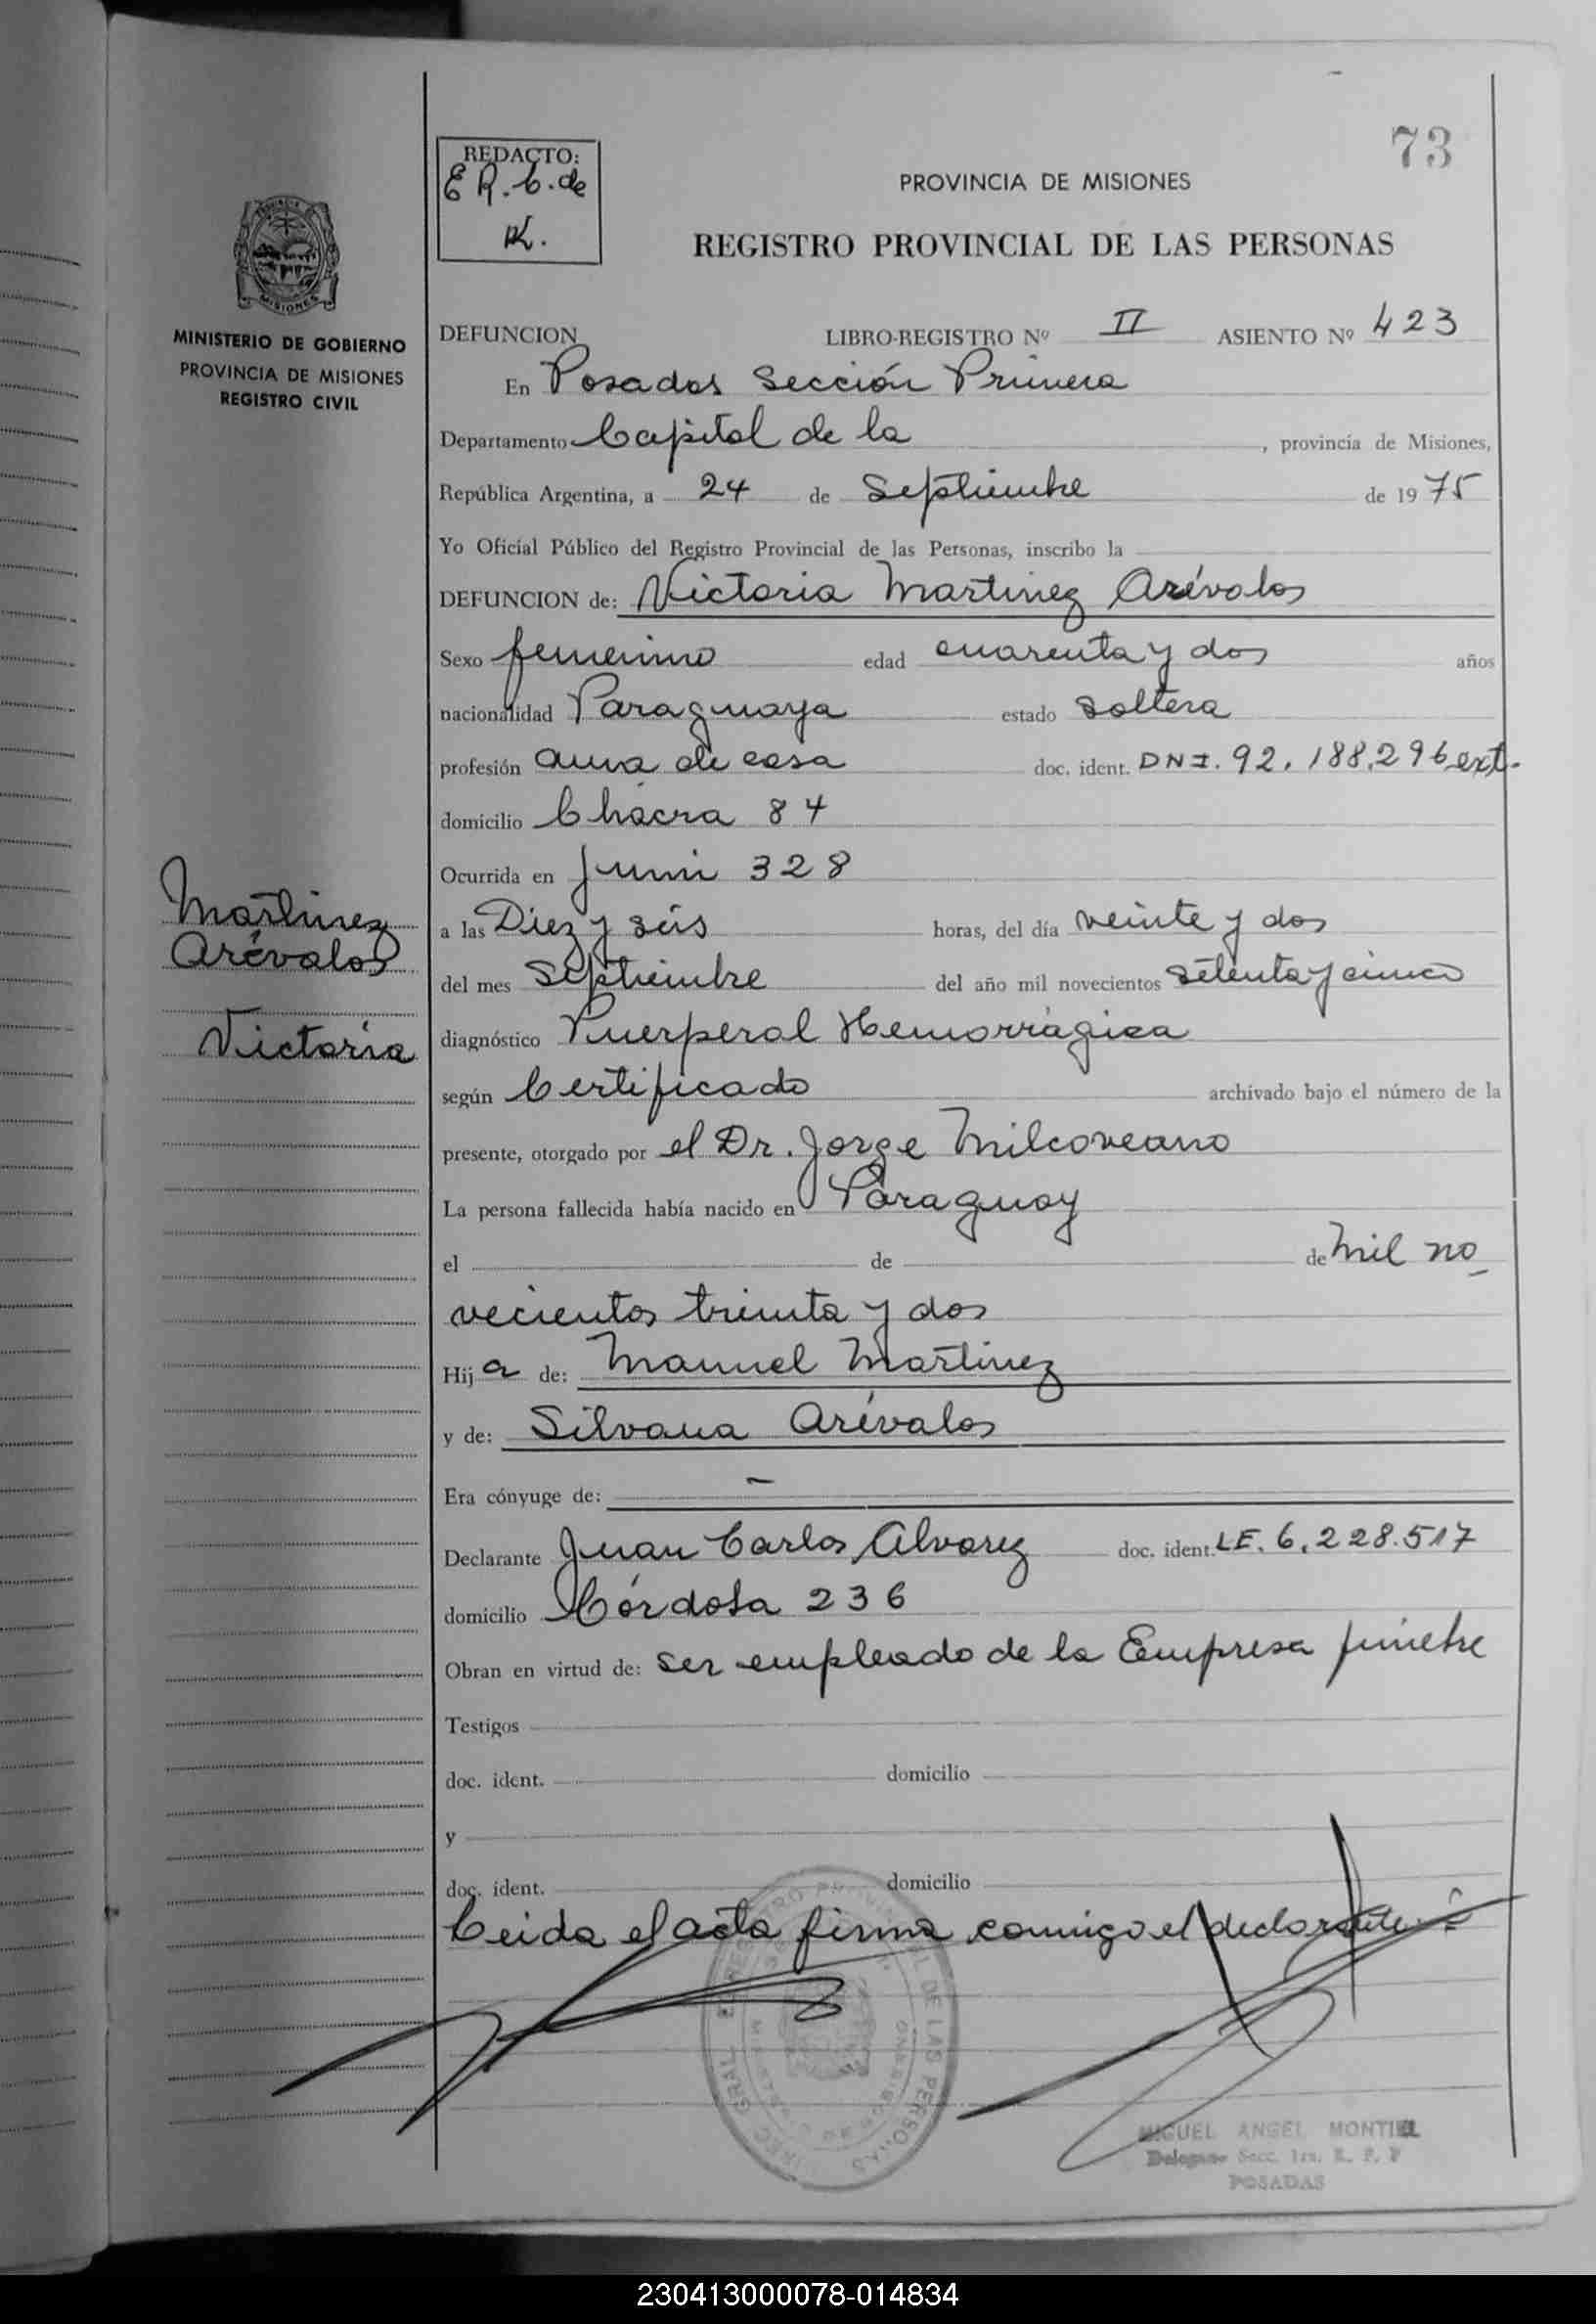 73
REDACTO:
E R. C. de
K.
PROVINCIA DE MISIONES
REGISTRO PROVINCIAL DE LAS PERSONAS
MISIONES
MINISTERIO DE GOBIERNO
PROVINCIA DE MISIONES
REGISTRO CIVIL
DEFUNCION LIBRO-REGISTRO Nº II ASIENTO Nº 423
En Posadas Sección Primera
Departamento Capital de la, provincia de Misiones,
República Argentina, a 24 de Septiembre de 1975
Yo Oficial Público del Registro Provincial de las Personas, inscribo la
DEFUNCION de: Victoria Martinez Arévalos
Sexo femenino edad cuarenta y dos años
nacionalidad Paraguaya estado Soltera
profesión ama de casa doc. ident. DNI. 92.188.296 ext.
domicilio Chacra 84
Ocurrida en Junin 328
Martinez
Arévalos
Victoria
a las Diez y seis horas, del día veinte y dos
del mes Septiembre del año mil novecientos setenta y cinco
diagnóstico Puerperal Hemorrágica
según Certificado archivado bajo el número de la
presente, otorgado por el Dr. Jorge Milcoveano
La persona fallecida había nacido en Paraguay
el de de mil no
vecientos treinta y dos
Hija de: Manuel Martinez
y de: Silvana Arévalos
Era cónyuge de: -
Declarante Juan Carlos Alvarez doc. ident. LE. 6.228.517
domicilio Córdoba 236
Obran en virtud de: ser empleado de la Empresa fúnebre
Testigos
doc. ident. domicilio
y
doc. ident. domicilio
Leida el acta firma conmigo el declarante.
MIGUEL ANGEL MONTIEL
Delegado Secc. 1ra. R. P. P
POSADAS
230413000078-014834